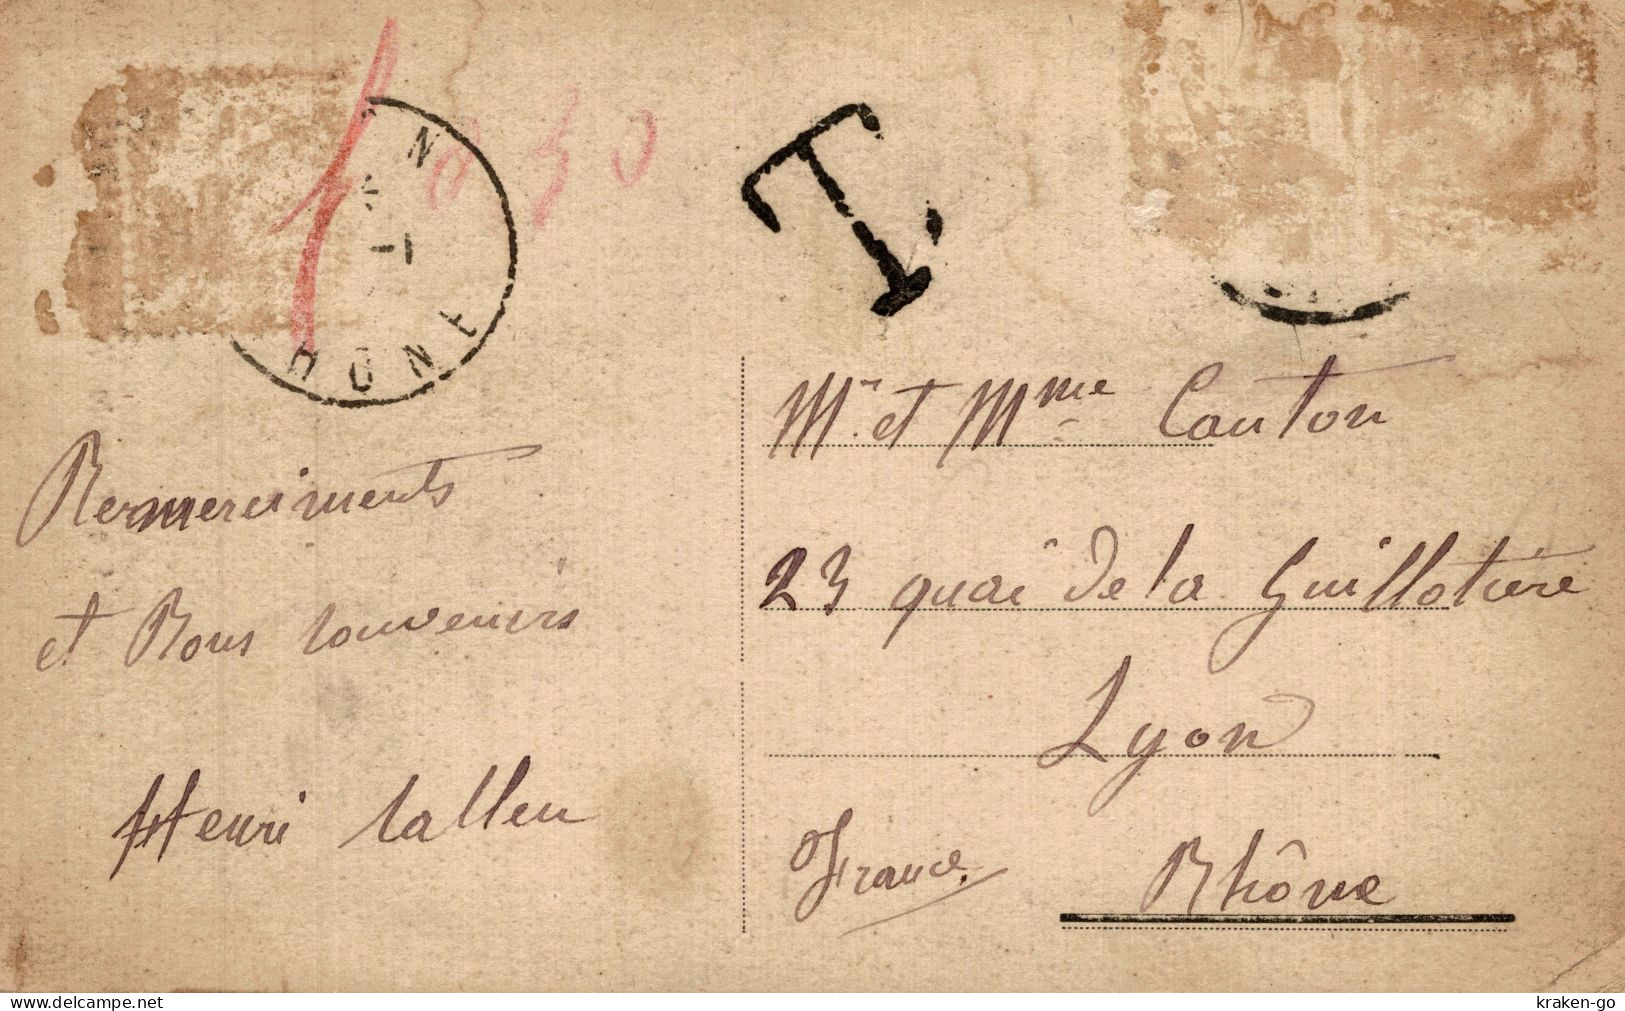 N
0 30
T
1
HONE
Mr. et Mme Canton
23 quai de la Guillotière
Lyon
France. Rhône
Remerciments
et Bons souvenirs
Henri
www.delcampe.net
kraken-go